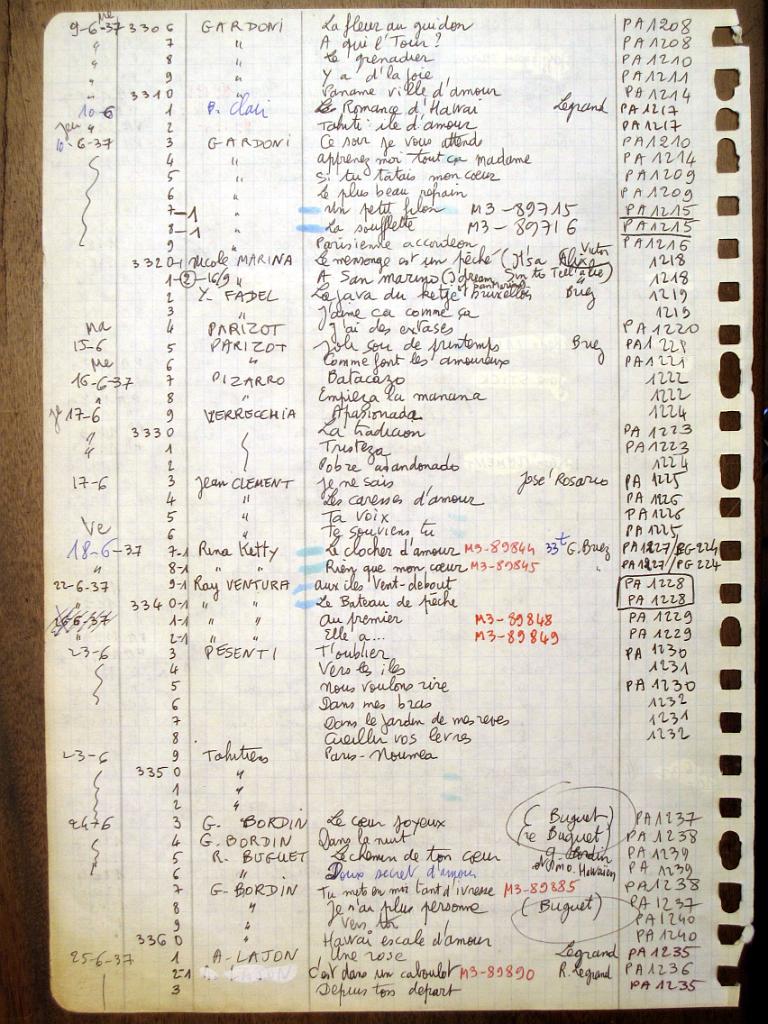 me
9-6-37 3306 GARDONI La fleur au guidon PA 1208
" 7 " A qui l'Tour? PA 1208
" 8 " Le grenadier PA 1210
" 9 " Y a d'la joie PA 1211
3310 " Paname ville d'amour PA 1214
10-6 1 P. Clari La Romance d'Hawaï Legrand PA 1217
jeu " 2 Tahiti île d'amour PA 1217
10-6-37 3 GARDONI Ce soir je vous attend PA 1210
4 " apprenez moi tout ça madame PA 1214
5 " Si tu tatais mon cœur PA 1209
6 " Le plus beau refrain PA 1209
7-1 " Un petit filon M3-89715 PA 1215
8-1 " La soufflette M3-89716 PA 1215
9 " Parisienne accordeon PA 1216
3320-1 Nicole MARINA Le mensonge est un péché (It's a Victor 1218
1-2-16/9 A San marino 1218
2 Y. FADEL La java du ketje bruxellois Buez 1219
3 " J'aime ca comme ça 1219
ma 4 PARIZOT J'ai des extases PA 1220
15-6 5 PARIZOT Joli soir de printemps Buez PA 1221
me 6 " Comme font les amoureux PA 1221
16-6-37 7 PIZARRO Batacazo 1222
" 8 " Empieza la manana 1222
je 17-6 9 VERRECCHIA Apasionada 1224
" 3330 La tradicion PA 1223
" 1 Tristeza PA 1223
2 Pobre abandonado 1224
17-6 3 Jean CLEMENT Je ne sais José Rosario PA 1225
4 " Les caresses d'amour PA 1226
5 " Ta voix PA 1226
Ve 6 " Te souviens tu PA 1225
18-6-37 7-1 Rina Ketty Le clocher d'amour M3-89844 33t G. Buez PA 1227/PG 224
8-1 " Rien que mon cœur M3-89845 " PA 1227/PG 224
22-6-37 9-1 Ray VENTURA aux iles Vent-debout PA 1228
3340-1 " " Le Bateau de pêche PA 1228
1-1 " " Au premier M3-89848 PA 1229
2-1 " " Elle a... M3-89849 PA 1229
23-6 3 PESENTI T'oublier PA 1230
4 Vers les iles 1231
5 Nous voulons rire PA 1230
6 Dans mes bras 1232
7 Dans le jardin de mes reves 1231
8 Cueillir vos levres 1232
23-6 9 Tahitiens Paris-Noumea
3350 "
1 "
2 "
24-6 3 G. BORDIN Le cœur joyeux (Buguet) PA 1237
4 G. BORDIN Dans la nuit (re Buguet) PA 1238
5 R. BUGUET Le chemin de ton cœur g. Bordin PA 1239
6 " Doux secret d'amour Hawaien PA 1239
7 G. BORDIN Tu mets en moi tant d'ivresse M3-89885 PA 1238
8 " Je n'ai plus personne (Buguet) PA 1237
9 " Vers toi PA 1240
3360 " Hawaï escale d'amour PA 1240
25-6-37 1 A. LAJON Une rose Legrand PA 1235
2-1 C'est dans un caboulot M3-89890 R. Legrand PA 1236
3 Depuis ton depart PA 1235